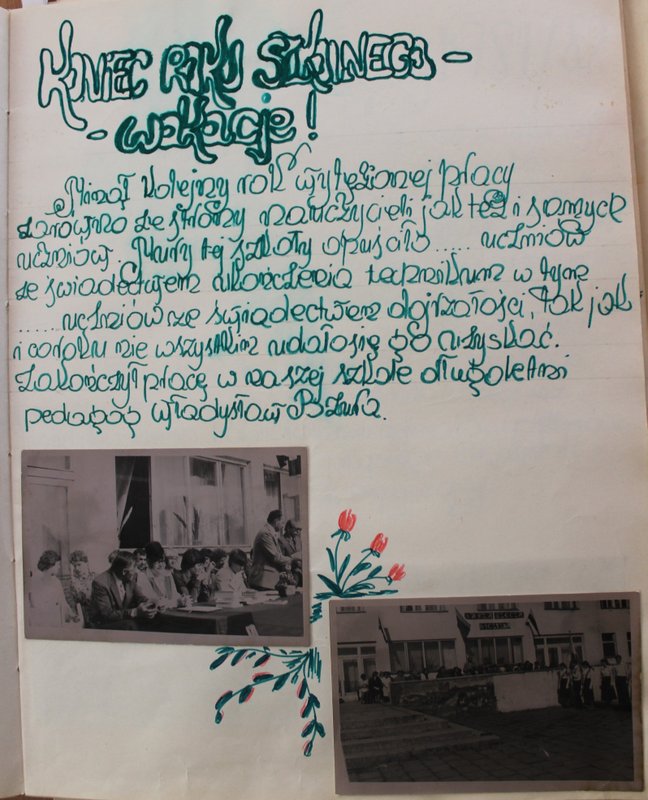 KONIEC ROKU SZKOLNEGO –
– wakacje!
Minął kolejny rok wytężonej pracy
zarówno ze strony nauczycieli jak też i samych
uczniów. Mury tej szkoły opuściło ..... uczniów
ze świadectwem ukończenia technikum w tym
..... uczniów ze świadectwem dojrzałości, tak jak
i co roku nie wszystkim udało się go uzyskać.
Zakończył pracę w naszej szkole długoletni
pedagog Władysław Bzura.